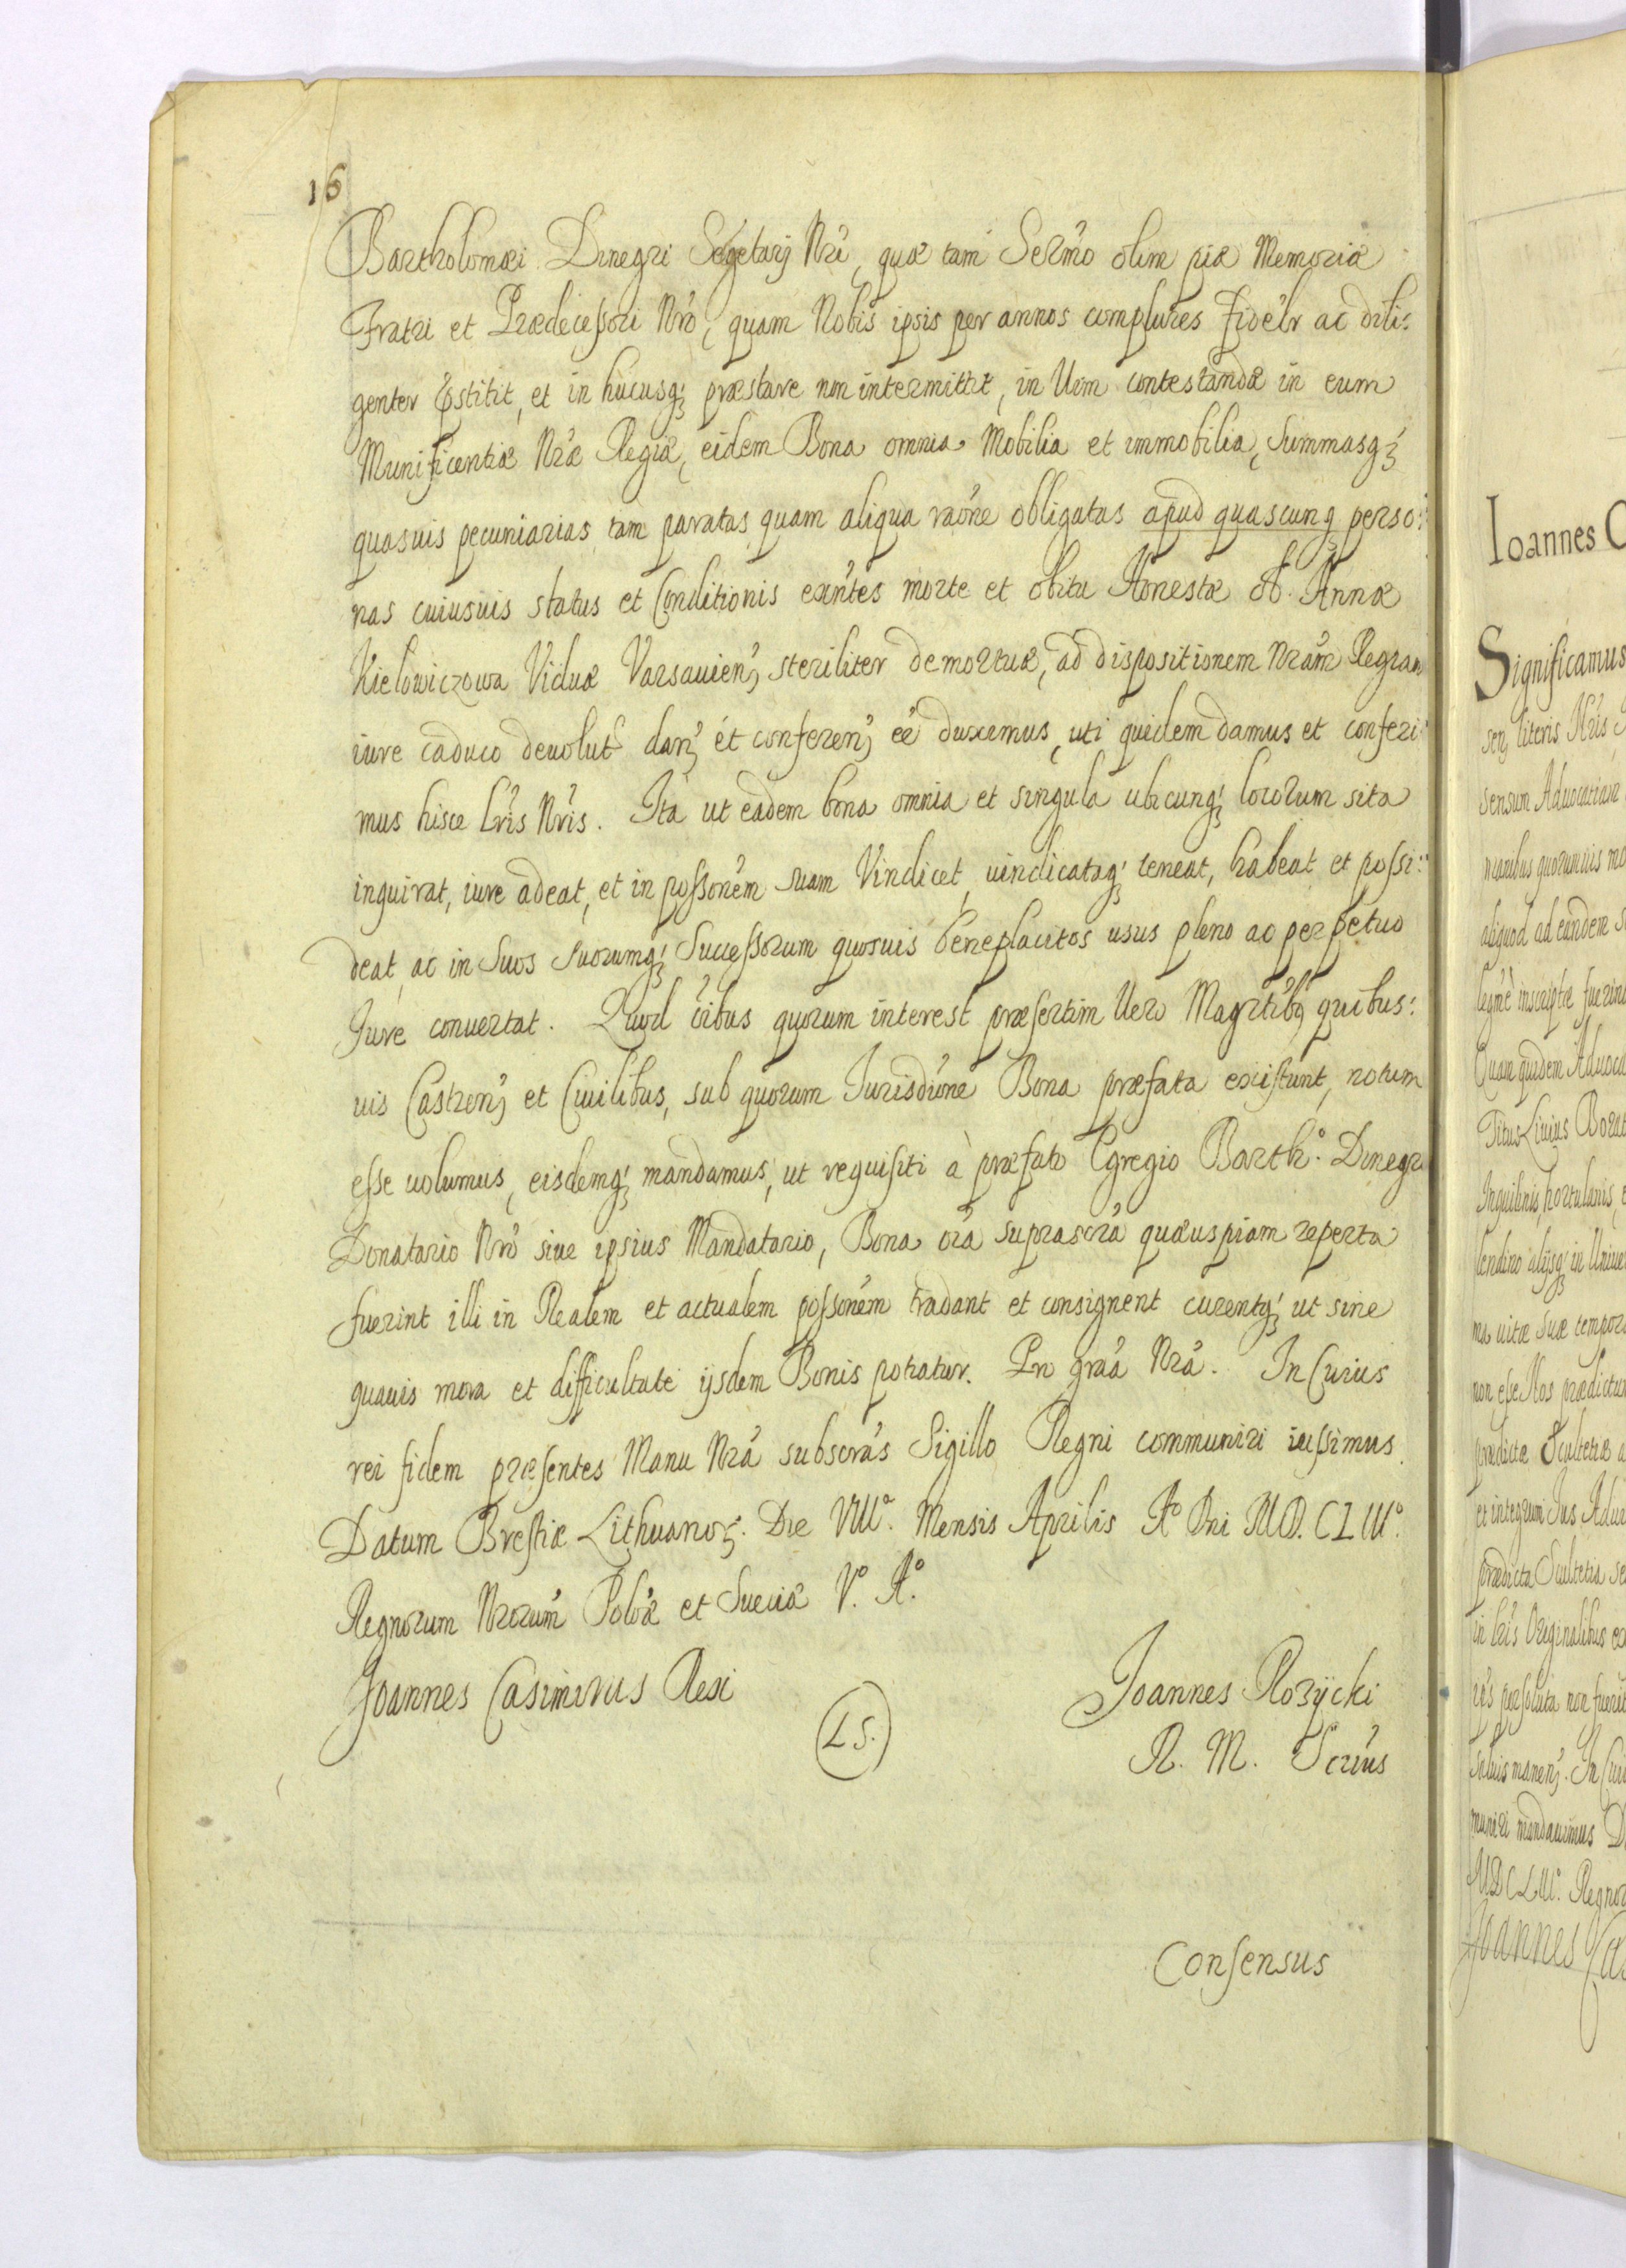 16
Bartholomæi Dinegri Secretarij Nri, quæ tam Sermo olim piæ Memoriæ
Fratri et Prædecessori Nro, quam Nobis ipsis per annos complures fidelr ac dili:
genter pstitit, et in hucusq; præstare non intermittit, in Uim contestandæ in eum
Munificentiæ Nræ Regiæ, eidem Bona omnia Mobilia et immobilia, Summasq;
quasuis pecuniarias tam paratas quam aliqua raone obligatas apud quascunq perso:
nas cuiusuis status et Conditionis exntes morte et obitu Honestæ ol. Annæ
Kielowiczowa Viduæ Varsauien; steriliter demortuæ, ad dispositionem Nram Regiam
iure caduco deuolut dan; et conferen; ee duximus, uti quidem damus et conferi:
mus hisce Lris Nris. Ita ut eadem bona omnia et singula ubicunq; locorum sita
inquirat, iure adeat, et in possonem suam Vindicet, uindicataq; teneat, habeat et possi:
deat, ac in Suos suorumq; Successorum quosuis beneplacitos usus pleno ac perpetuo
Jure conuertat. Quod oibus quorum interest præsertim Uero Magrtibq quibus:
uis Castren; et Ciuilibus, sub quorum Jurisdione Bona præfata existunt, notum
esse uolumus, eisdemq; mandamus, ut requisiti à præfato Egregio Barth.° Dinegri
Donatario Nro siue ipsius Mandatario, Bona oia suprascra quæuspiam reperta
fuerint illi in Realem et actualem possonem tradant et consignent curentq; ut sine
quauis mora et difficultate ijsdem Bonis potiatur. Pro graa Nra. In Cuius
rei fidem præsentes Manu Nra subscras Sigillo Regni communiri iussimus.
Datum Brestiæ Lithuanor. Die VIII°. Mensis Aprilis A° Dni M.D.CLIII°.
Regnorum Nrorum Polæ et Sueciæ V.° A.°
Joannes Casimirus Rex
(L S.)
Joannes Rozÿcki
R. M. Scrius
Consensus
Ioannes C
Significamus
sen; literis Nris
sensum Aduocatiam
manibus quorumuis mo
aliquod ad eandem
inscriptæ fuerint
Quam quidem Aduoca
Titus Liuius Borat
Inquilinis, hortulanis,
alijsq; in Uniue
ma uitæ suæ tempora
non esse Nos prædictum
prædictæ Scultetiæ a
et integrum Jus Aduo
prædicta Scultetia se
in Lris Originalibus ex
persoluta non fuerit
saluis manen;. In Cuius
muniri mandauimus D
MDCLIII°. Regnor
Joannes Ca